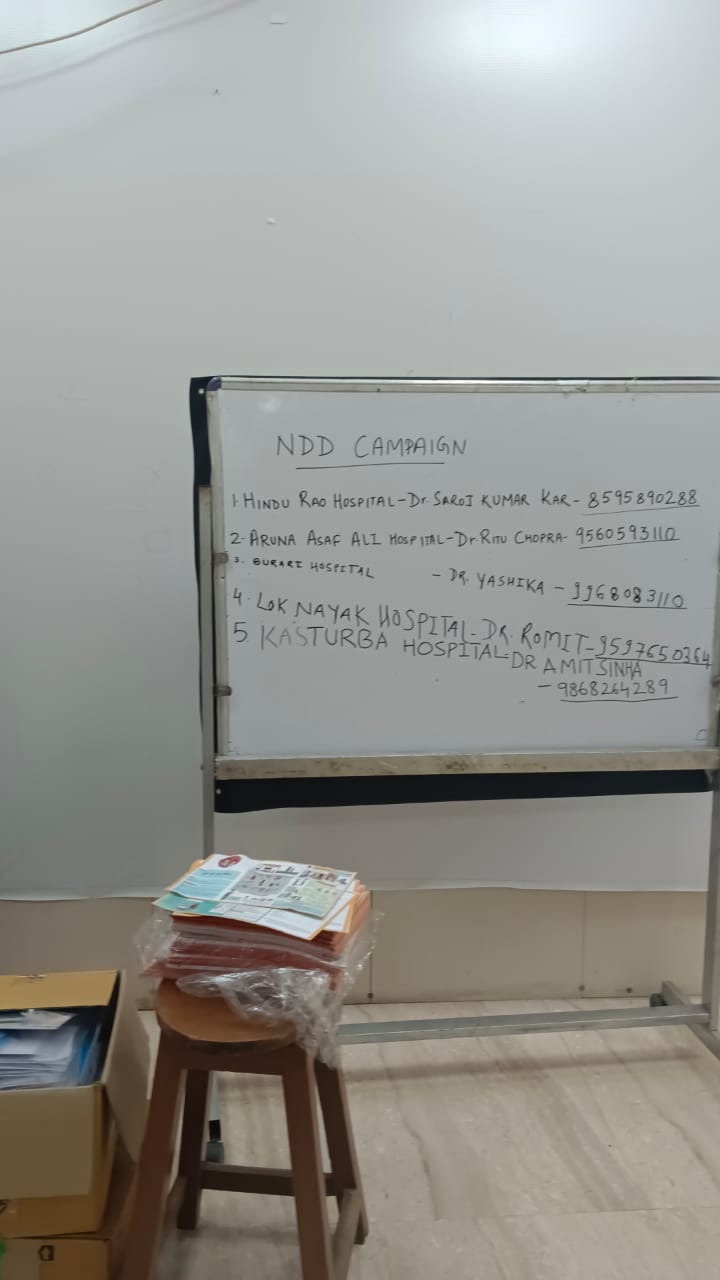 NDD CAMPAIGN
1. HINDU RAO HOSPITAL - Dr. SAROJ KUMAR KAR - 8595890288
2. ARUNA ASAF ALI HOSPITAL - Dr. RITU CHOPRA - 9560593110
3. BURARI HOSPITAL - DR. YASHIKA - 9968083110
4. LOK NAYAK HOSPITAL - DR. ROMIT - 9597650364
5. KASTURBA HOSPITAL - DR AMIT SINHA
- 9868264289